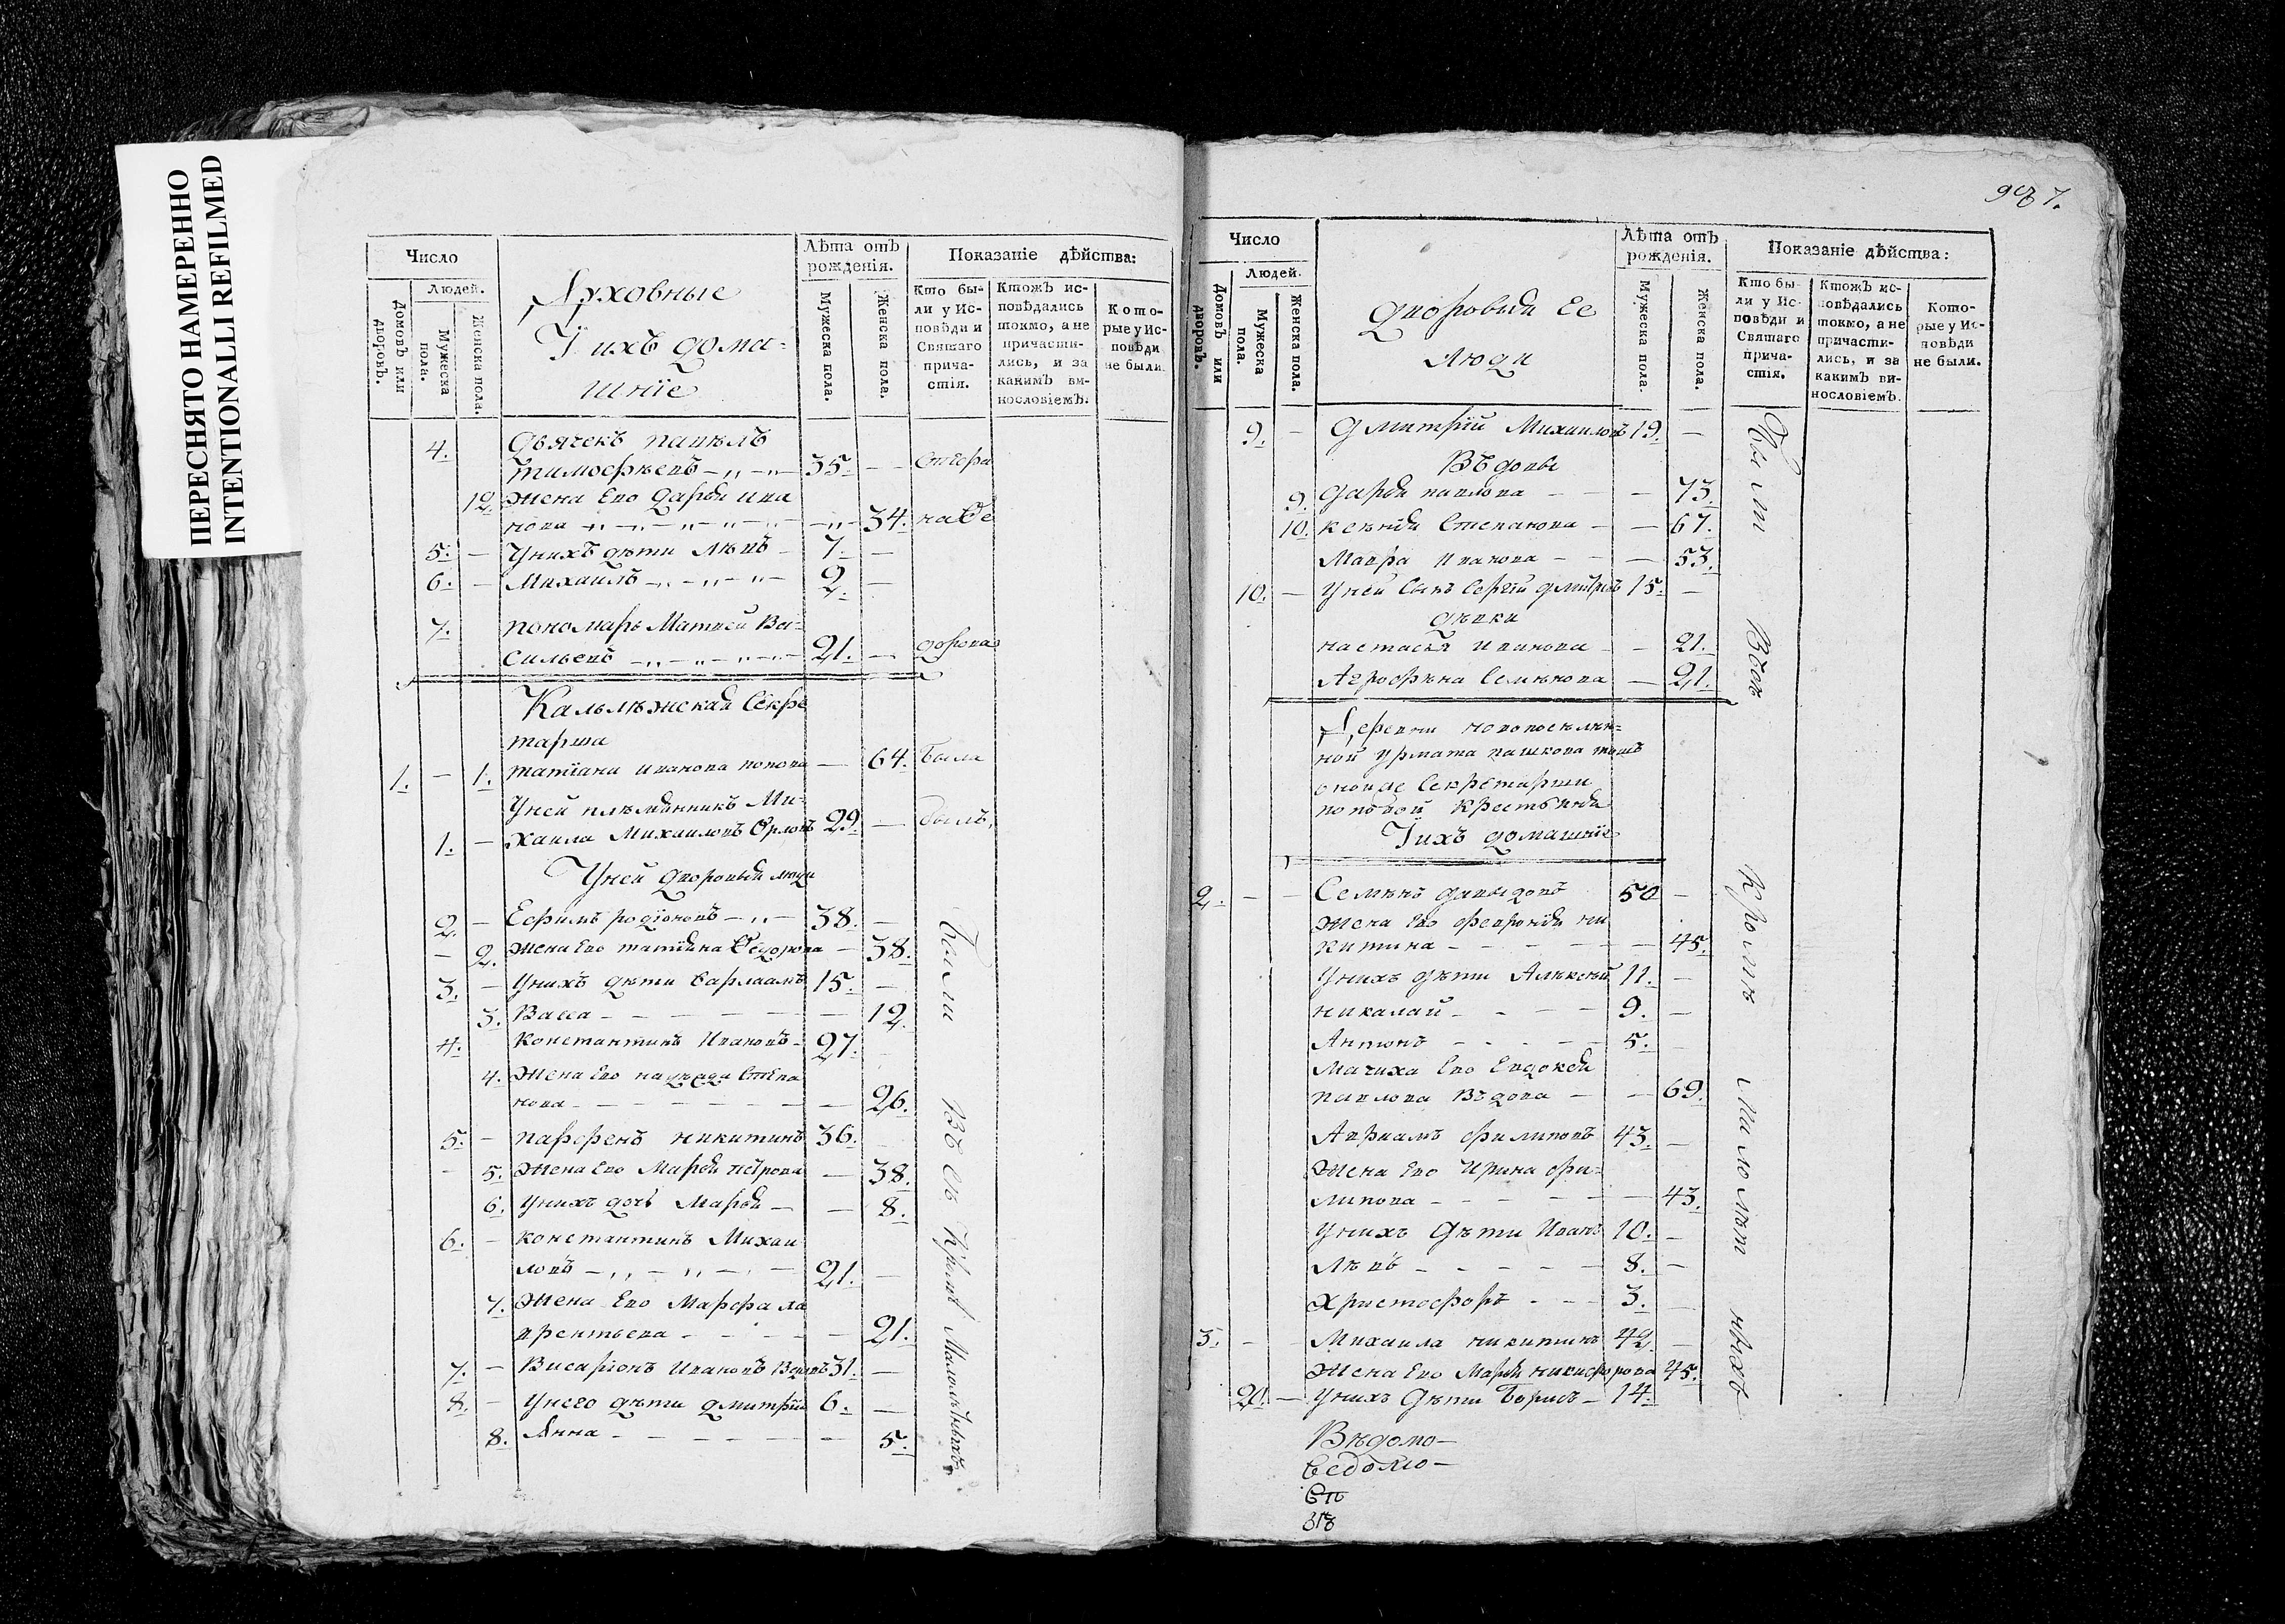 ПЕРЕСНЯТО НАМЕРЕННО
INTENTIONALLI REFILMED
Число
Людей.
Домовъ или дворовъ.
Мужеска пола.
Женска пола.
Духовные
I ихъ дома-
шнiе
Лѣта отъ рожденiя.
Мужеска пола.
Женска пола.
Показанiе дѣйства:
Кто бы-
ли у Ис-
повѣди и
Святаго
прича-
стiя.
Ктожъ ис-
повѣдались
токмо, а не
причасти-
лись, и за
какимъ ви-
нословiемъ.
Кото-
рые у Ис-
повѣди
не были.
4. дьячекъ павелъ
тимофѣевъ 35.
12. жена Ево дарья ива
нова 34.
5. – Унихъ дѣти Лѣвъ 7. –
6. – Михаилъ 2. –
7. пономарь Матвей Ва-
сильевъ 21. –
Кальлѣжская Секре
тарша
1. – 1. татiана иванова попова – 64. была
Уней плѣмянникъ Ми-
1. – хаила Михаиловъ Орловъ 29. – былъ.
Уней дворовыя люди
2. – Ефимъ родiоновъ 38. –
– 2. жена Ево татiяна Ѳедорова – 38.
3. – Унихъ дѣти варлаамъ 15. –
3. Васса – 12.
4. Константинъ Ивановъ 27.
4. Жена Ево надѣжда Степа
нова – 26.
5. – парфенъ никитинъ 36.
– 5. Жена Ево Марья петрова – 38.
6. Унихъ дочь Марья – 8.
6. – константинъ Михаи
ловъ 21. –
7. Жена Ево Марфа ла
врентьева – 21.
7. – Висарiонъ Ивановъ Вдовъ 31. –
8. – Унего дѣти дмитрiй 6. –
8. Анна – 5.
Были Всѣ Кромѣ Малолѣтныхъ
967.
Число
Людей.
Домовъ или дворовъ.
Мужеска пола.
Женска пола.
дворовыя Ее
люди
Лѣта отъ рожденiя.
Мужеска пола.
Женска пола.
Показанiе дѣйства:
Кто бы-
ли у Ис-
повѣди и
Святаго
прича-
стiя.
Ктожъ ис-
повѣдались
токмо, а не
причасти-
лись, и за
какимъ ви-
нословiемъ.
Кото-
рые у Ис-
повѣди
не были.
9. – дмитрiй Михаиловъ 19. –
Въдовы
9. дарья павлова – 73.
10. ксѣнiя Степанова – 67.
Мавра Иванова – 53.
10. – Уней сынъ Сергiй дмитревъ 15. –
дѣвки
настасья Иванова – 21.
Агрофѣна Семѣнова – 21.
Деревни новопоселѣн-
ной Урмата пашкова тожъ
оной же Секретарши
поповой крестьяня
I ихъ домашнiе
2. – – Семѣнъ давыдовъ 50 –
Жена Ево февронiя ни
китина – 45.
Унихъ дѣти Алѣксѣй 11. –
никалай 9. –
Антонъ 5. –
Мачиха Ево Евдокея
павлова Въдова – 69.
Авриамъ филиповъ 43. –
Жена Ево Ирина фи-
липова – 43.
Унихъ дѣти Иванъ 10. –
Лѣвъ 8. –
Христофоръ 3. –
3. – – Михаила никитинъ 42. –
Жена Ево Марья никифорова 45.
20. – Унихъ дѣти Борисъ 14.
Были Всѣ кромѣ малолѣтныхъ
Вѣдомо–
Ведомо–